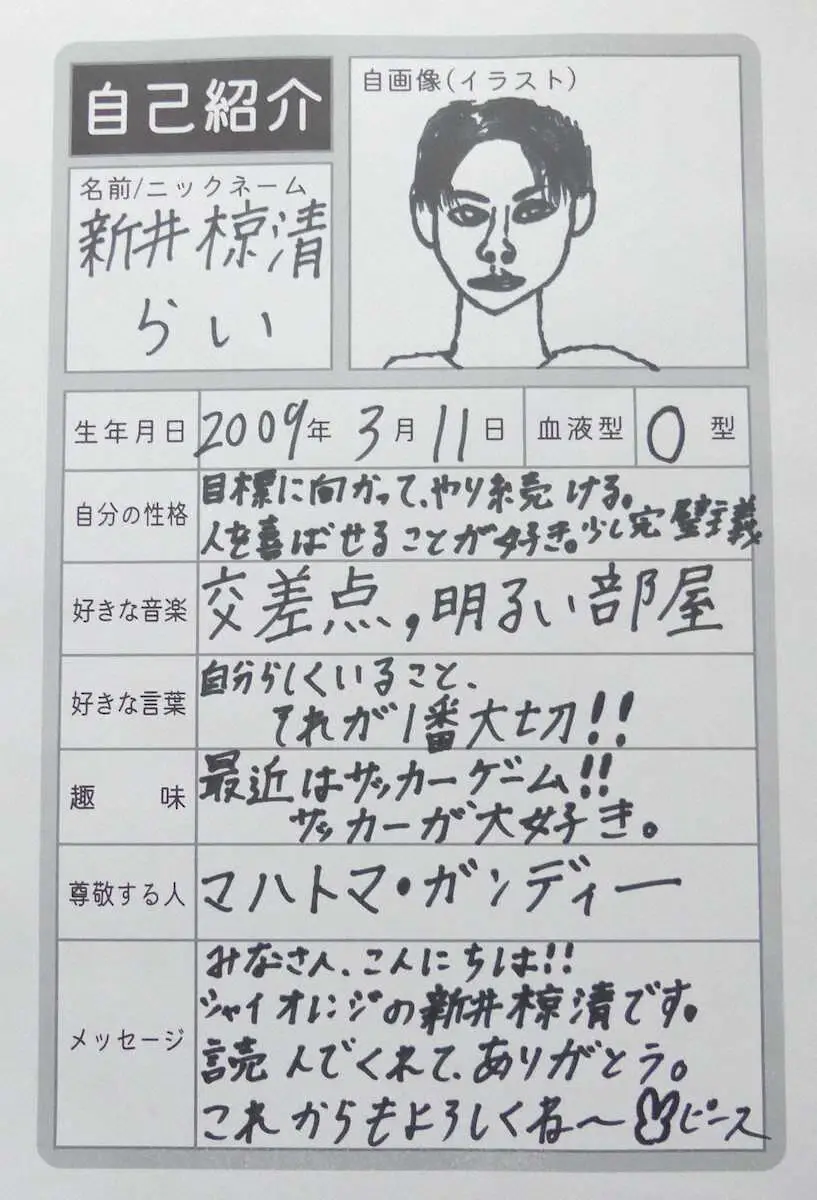 自己紹介
自画像(イラスト)
名前/ニックネーム
新井椋清
らい
生年月日 2009年 3月 11日 血液型 O型
自分の性格
目標に向かって、やり続ける。
人を喜ばせることが好き。少し完璧主義
好きな音楽
交差点,明るい部屋
好きな言葉
自分らしくいること、
それが1番大切!!
趣味
最近はサッカーゲーム!!
サッカーが大好き。
尊敬する人
マハトマ・ガンディー
メッセージ
みなさん、こんにちは!!
シャイオレンジの新井椋清です。
読んでくれて、ありがとう。
これからもよろしくね〜ピース